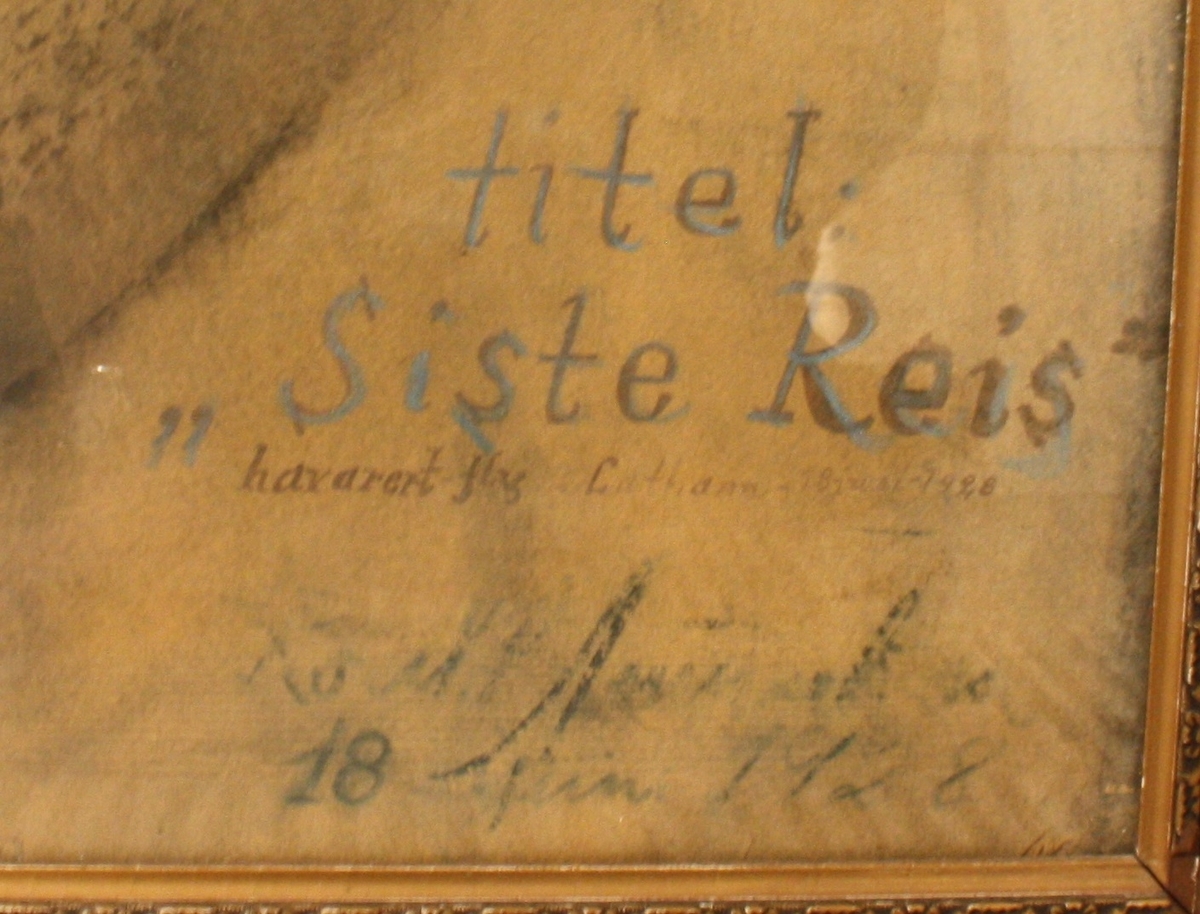 titel:
„Siste Reis"
havarert flag - Latham - 18 juni - 1928
18 juni 1928